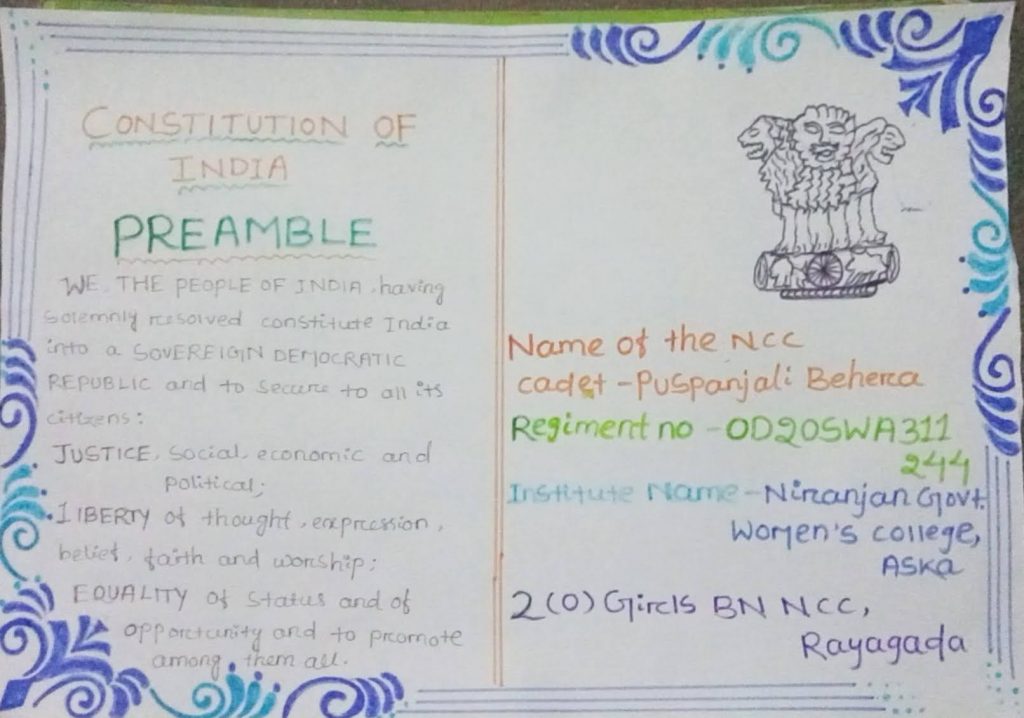 CONSTITUTION OF
INDIA
PREAMBLE
WE, THE PEOPLE OF INDIA, having
solemnly resolved constitute India
into a SOVEREIGN DEMOCRATIC
REPUBLIC and to secure to all its
citizens:
JUSTICE, Social, economic and
Political;
LIBERTY of thought, expression,
belief, faith and worship;
EQUALITY of Status and of
opportunity and to promote
among them all.
Name of the NCC
cadet - Puspanjali Behera
Regiment no - OD20SWA311
244
Institute Name - Niranjan Govt.
Women's college,
Aska
2(O) Girls BN NCC,
Rayagada